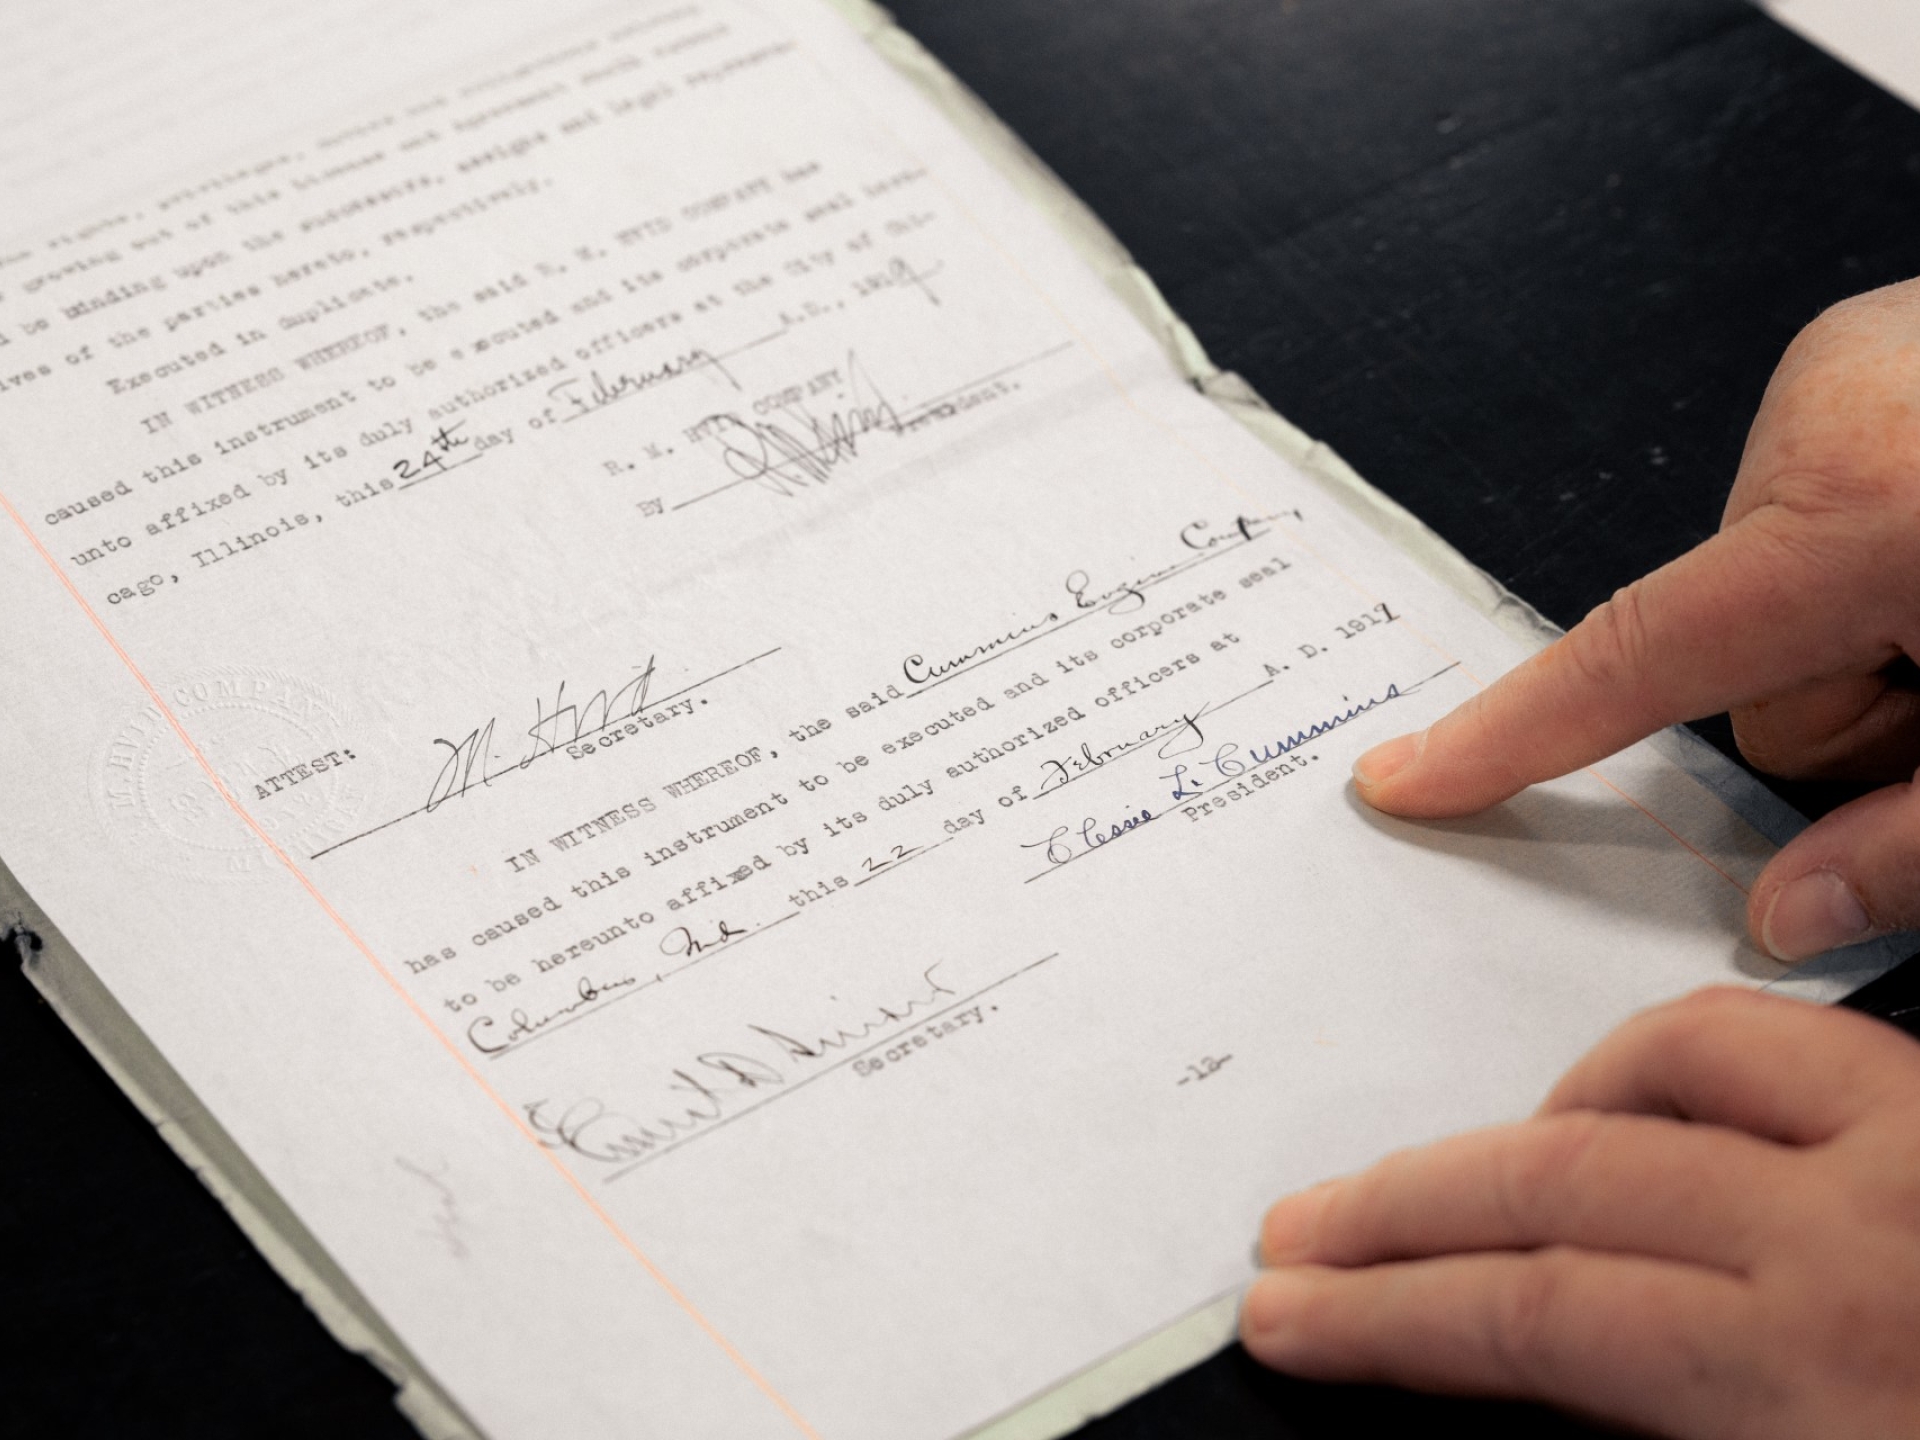 rights, privileges,
growing out of this License and Agreement shall
be binding upon the successors, assigns and legal
ives of the parties hereto, respectively.
Executed in duplicate.
IN WITNESS WHEREOF, the said R. M. HVID COMPANY has
caused this instrument to be executed and its corporate seal here-
unto affixed by its duly authorized officers at the City of Chi-
cago, Illinois, this 24th day of February A.D., 1919
R. M. HVID COMPANY
By President.
ATTEST:
M. Hvid
Secretary.
IN WITNESS WHEREOF, the said Cummins Engine Company
has caused this instrument to be executed and its corporate seal
to be hereunto affixed by its duly authorized officers at
Columbus, Ind. this 22 day of February A. D. 1919
Clessie L. Cummins
President.
Secretary.
-12-